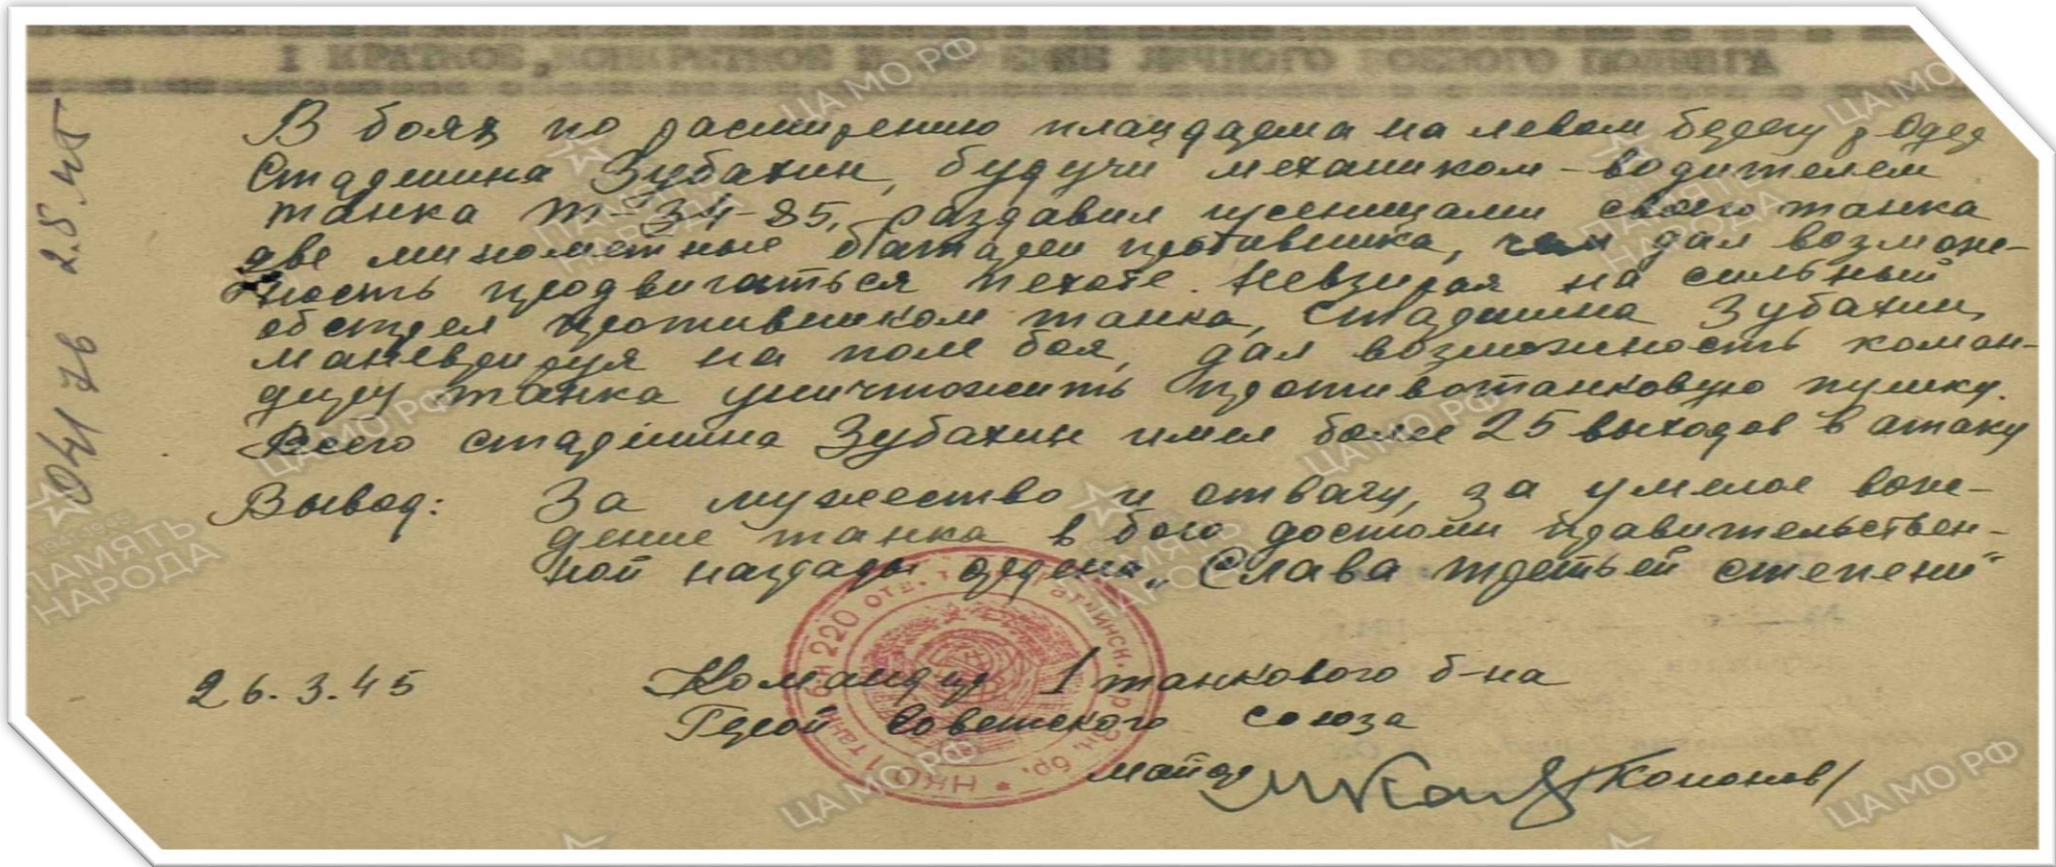 I КРАТКОЕ, КОНКРЕТНОЕ ИЗЛОЖЕНИЕ ЛИЧНОГО БОЕВОГО ПОДВИГА
В боях по расширению плацдарма на левом берегу р Одер
Старшина Зубахин, будучи механиком-водителем
танка Т-34-85, раздавил гусеницами своего танка
две минометные батареи противника, чем дал возмож-
ность продвигаться пехоте. Невзирая на сильный
обстрел противником танка, Старшина Зубахин,
маневрируя на поле боя, дал возможность коман-
диру танка уничтожить противотанковую пушку.
Всего старшина Зубахин имел более 25 выходов в атаку
Вывод: За мужество и отвагу, за умелое вож-
дение танка в бою достоин правительствен-
ной награды ордена „Слава третьей степени"
26.3.45 Командир 1 танкового б-на
Герой Советского Союза
майор /Кононов/
НКО 1 танк. б-н 220 отд. бр.
ЦА МО РФ
ПАМЯТЬ НАРОДА
1941-1945